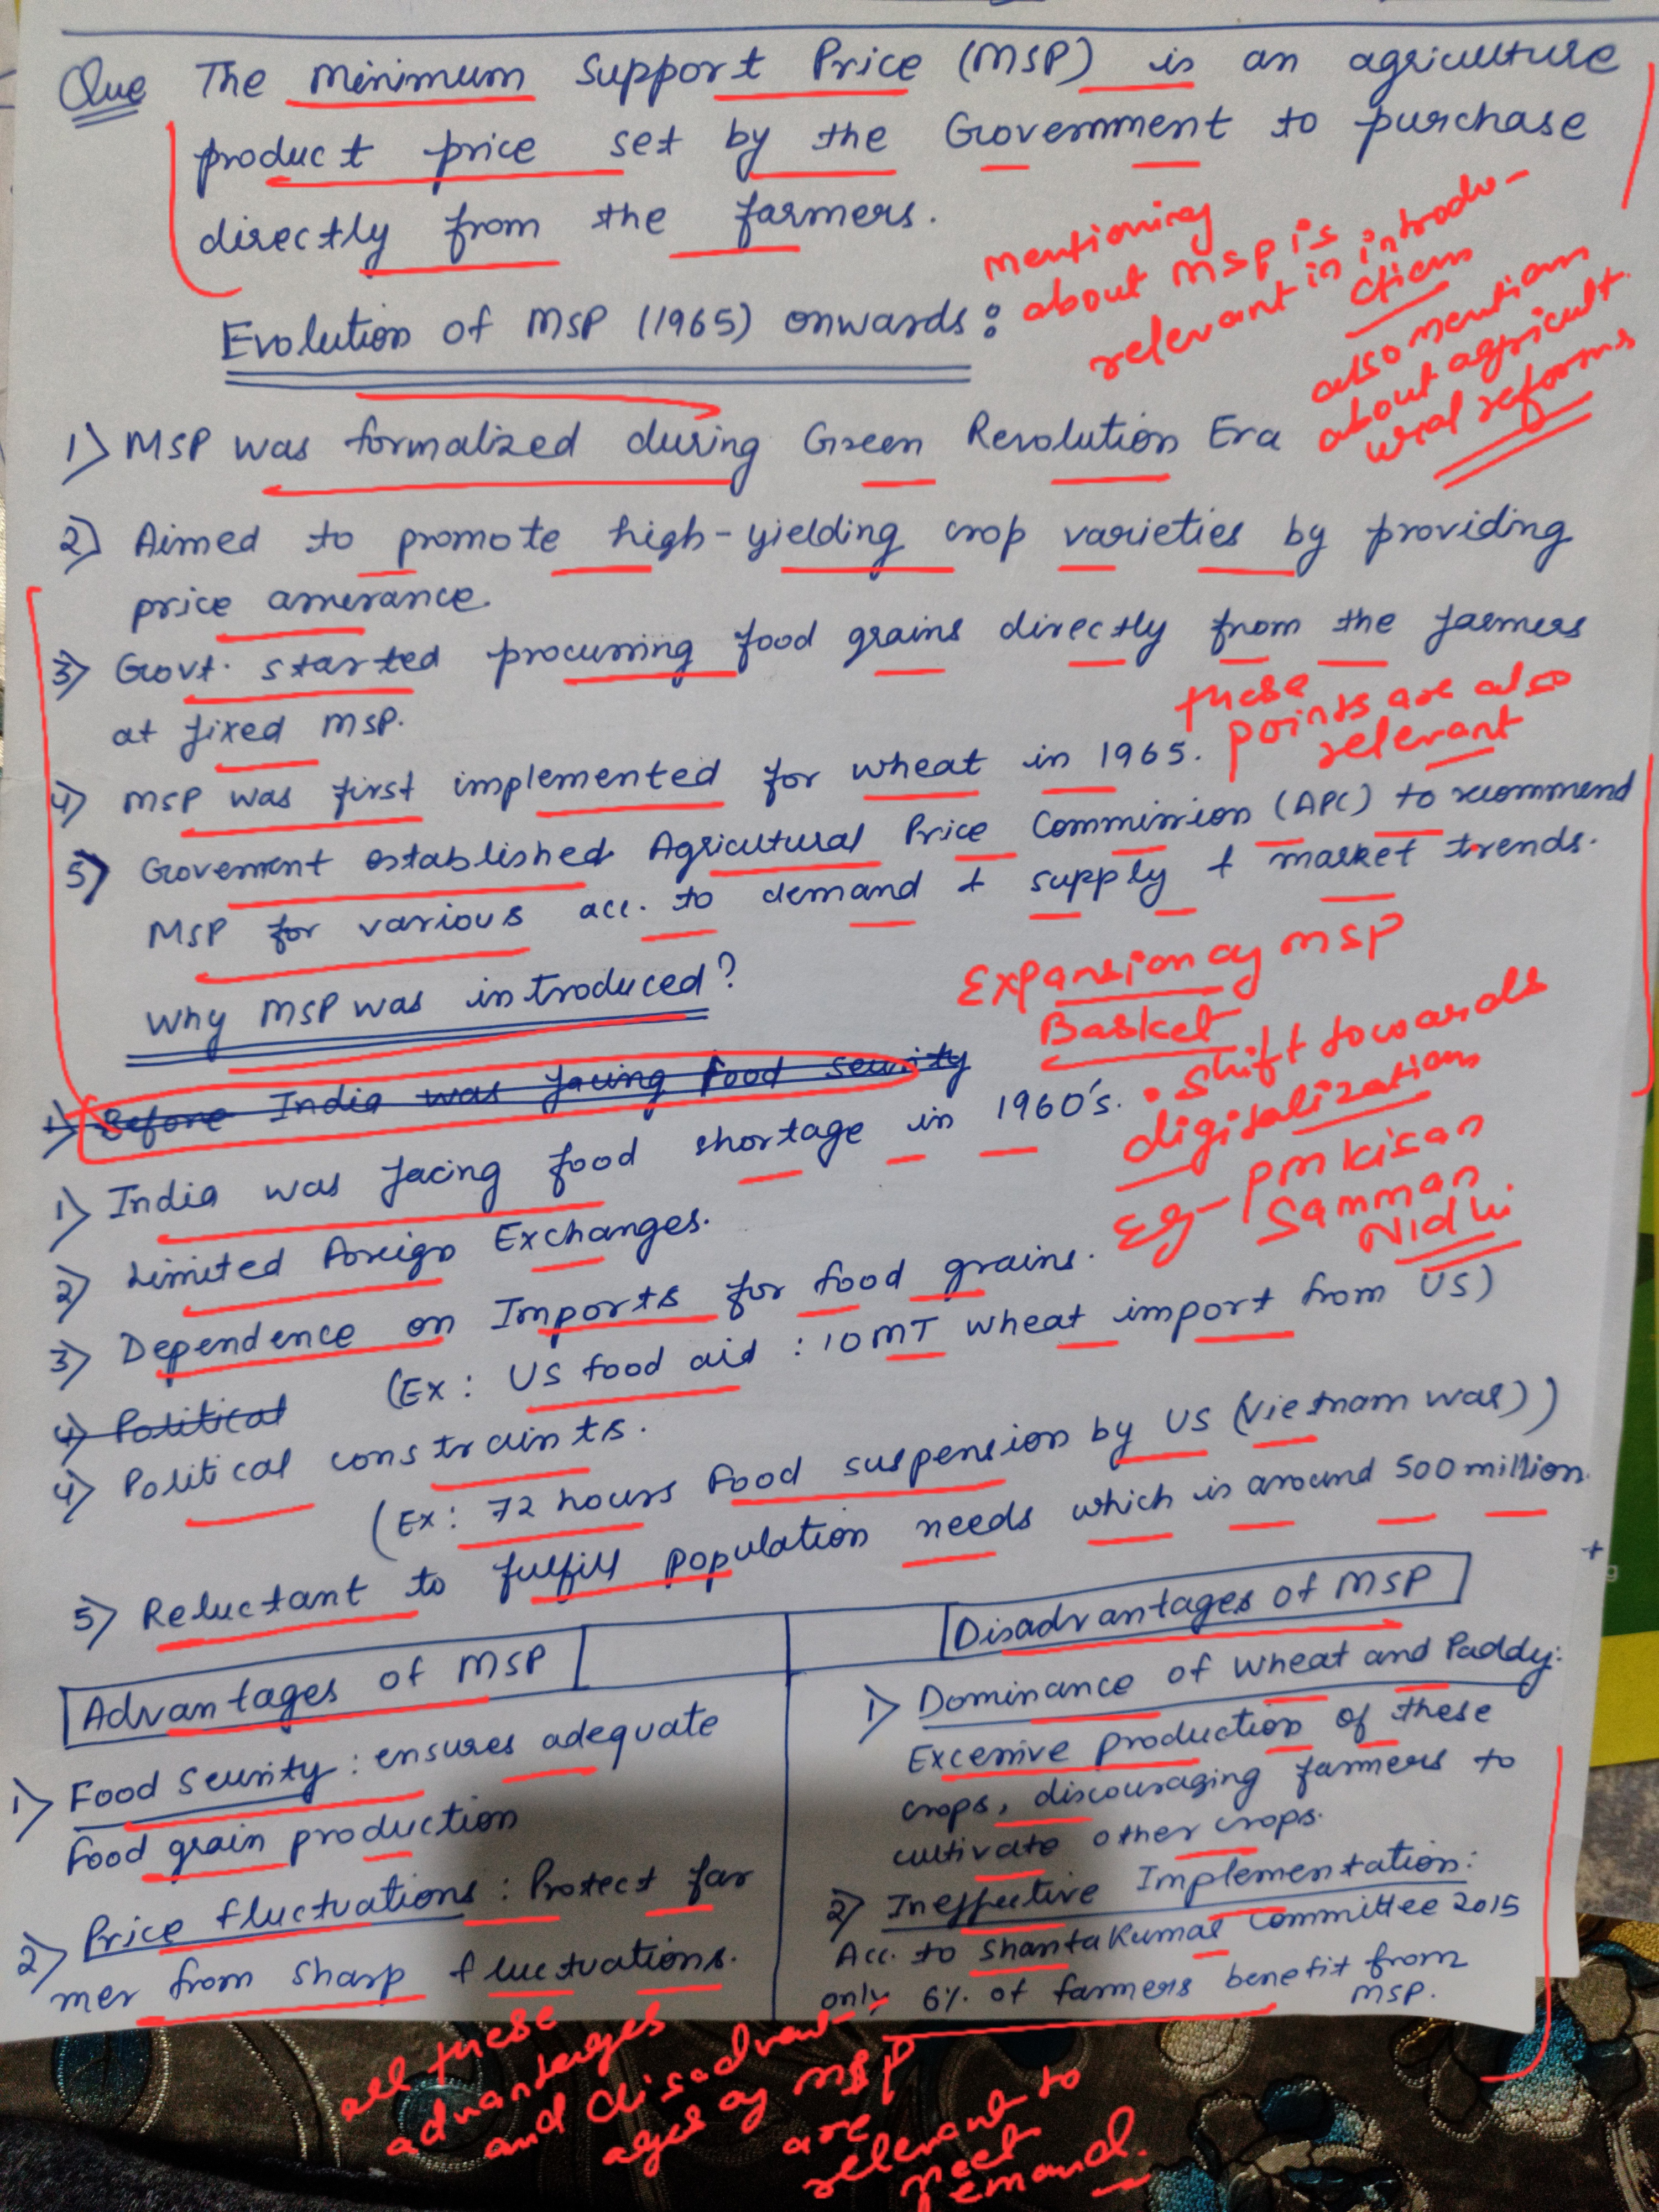 Que The Minimum Support Price (MSP) is an agriculture
product price set by the Government to purchase
directly from the farmers.
mentioning
about MSP is
relevant in introdu-
ction
also mention
about agricult
ural reforms
Evolution of MSP (1965) onwards:
1) MSP was formalized during Green Revolution Era
2) Aimed to promote high-yielding crop varieties by providing
price assurance.
3) Govt. started procuring food grains directly from the farmers
at fixed MSP.
these
points are also
relevant
4) MSP was first implemented for wheat in 1965.
5) Goverment established Agricutural Price Commission (APC) to recommend
MSP for various acc. to demand & supply & market trends.
Expansion of MSP
Basket
• shift towards
digitalization
Eg- PM Kisan
Samman
Nidhi
Why MSP was introduced?
1) Before India was facing food security
1) India was facing food shortage in 1960's.
2) Limited Foreign Exchanges.
3) Dependence on Imports for food grains.
(Ex: US food aid : 10 MT wheat import from US)
4) Political
4) Political constraints.
(Ex: 72 hours Food suspension by US (Vietnam war))
5) Reluctant to fulfill population needs which is around 500 million.
Advantages of MSP
1) Food Security: ensures adequate
food grain production
2) Price fluctuations: Protect far
mer from sharp fluctuations.
Disadvantages of MSP
1) Dominance of Wheat and Paddy:
Excessive production of these
crops, discouraging farmers to
cultivate other crops.
2) Ineffective Implementation:
Acc. to Shanta Kumar Committee 2015
only 6% of farmers benefit from
MSP.
all these
advantages
and disadvant-
ages of MSP
are
relevant to
meet
demand.